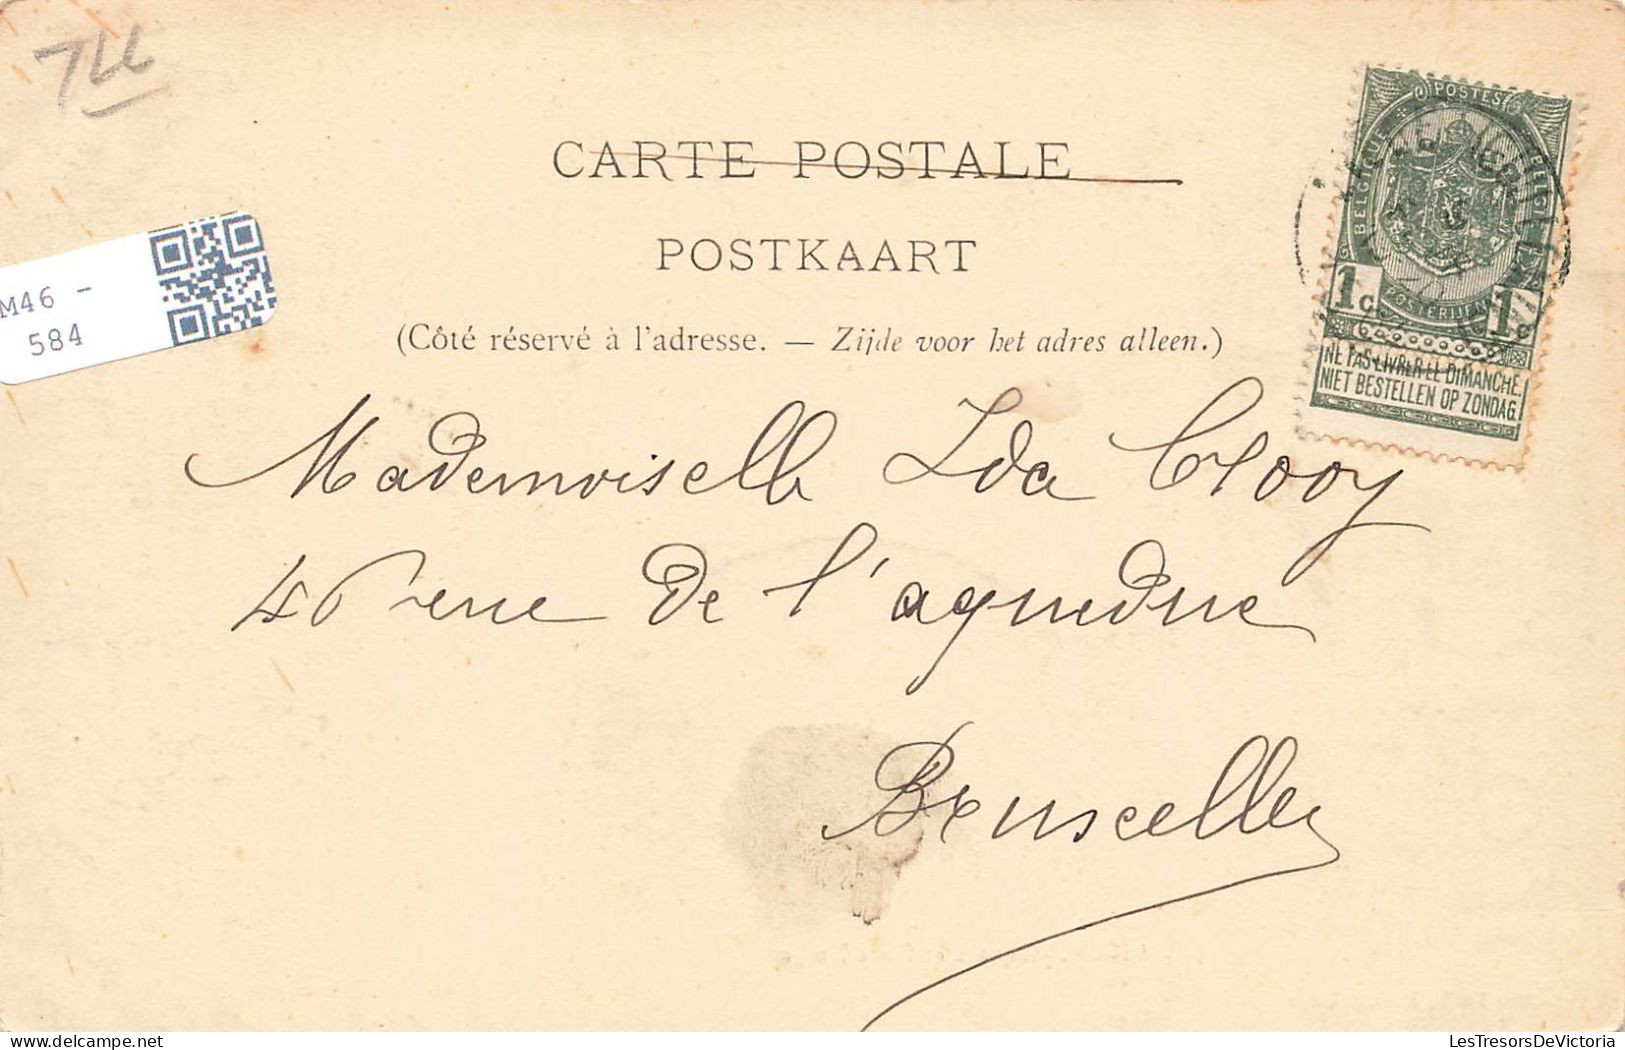 744
CARTE POSTALE
POSTKAART
M46 -
584
(Côté réservé à l'adresse. — Zijde voor het adres alleen.)
POSTES
BELGIQUE
BELGIE
POSTERIJEN
1c 1c
NE PAS LIVRER LE DIMANCHE.
NIET BESTELLEN OP ZONDAG.
Mademoiselle Ida Clooy
46 rue de l'aqueduc
Bruxelles
LesTresorsDeVictoria